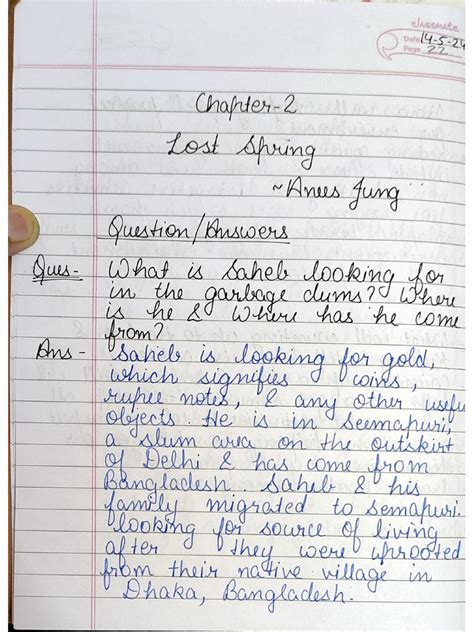 classmate
Date 14-5-24
Page 22
Chapter-2
Lost Spring
~Anees Jung
Question/Answers
Ques- What is Saheb looking for
in the garbage dums? Where
is he & Where has he come
from?
Ans - Saheb is looking for gold,
which signifies coins,
rupee notes, & any other useful
objects. He is in Seemapuri,
a slum area on the outskirt
of Delhi & has come from
Bangladesh. Saheb & his
family migrated to Semapuri.
looking for source of living
after they were uprooted
from their native village in
Dhaka, Bangladesh.